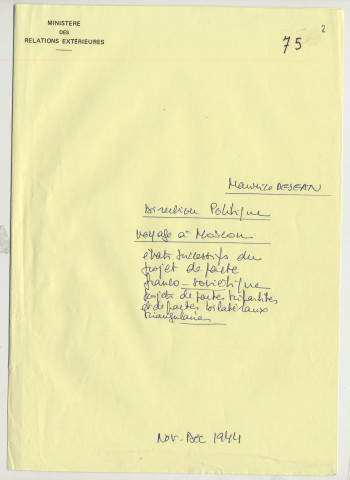 MINISTERE
DES
RELATIONS EXTÉRIEURES
2
75
Maurice DEJEAN
Direction Politique
Voyage à Moscou
états successifs du
projet de pacte
franco-soviétique
projets de pactes tripartites
et de pactes bilatéraux
triangulaires
Nov-Déc 1944